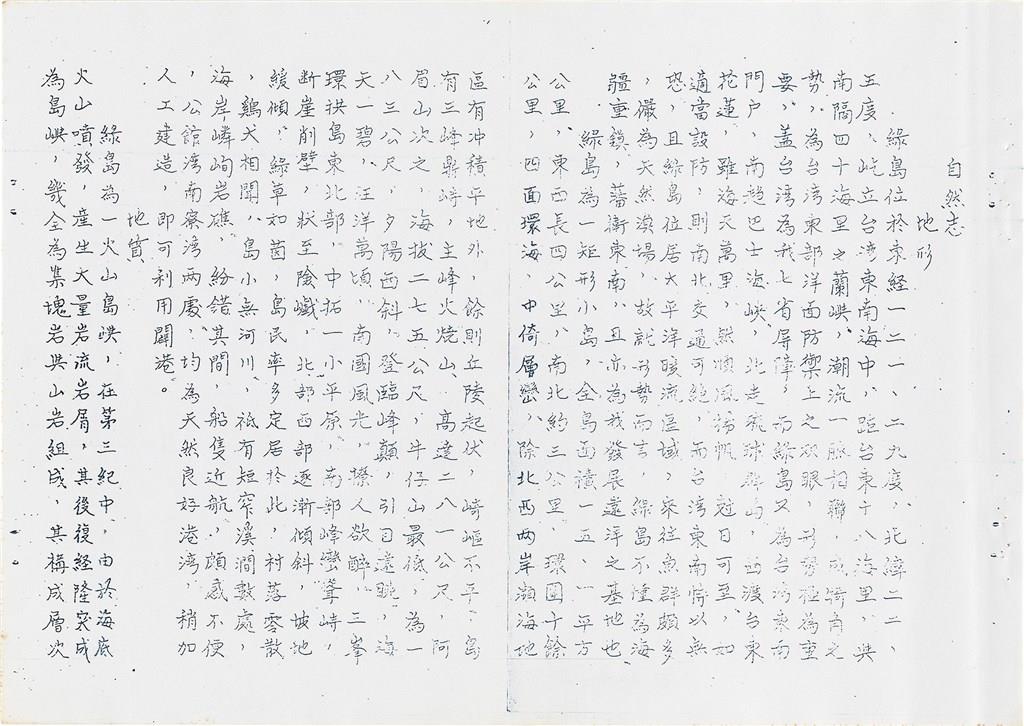 自然志
地形
綠島位於東経一二一、二九度、北緯二二、
五度、屹立台湾東南海中、距台東十八海里、與
南隔四十海里之蘭嶼、潮流一脈相聯、成犄角之
勢、為台湾東部洋面防禦上之双眼、形勢極為重
要、蓋台湾為我七省屏障、而綠島又為台湾東南
門户、南趨巴士海峡、北走琉球群山、西渡台東
花蓮、雖海天萬里、然順風揚帆、冠日可至、如
適當設防、則南北交通可絶、而台湾東南恃以無
恐、且綠島位居太平洋暖流區域、來往魚群頗多
，儼為天然漁場、故就形勢而言、綠島不僅為海
疆重鎮、藩衛東南、且亦為我發展遠洋之基地也
綠島為一矩形小島、全島面積一五、一一平方
公里、東西長四公里、南北約三公里、環圍十餘
公里、四面環海、中倚層巒、除北西両岸瀕海地
區有冲積平地外，餘則丘陵起伏，崎嶇不平、島
有三峰鼎峙，主峰火燒山、高達二八一公尺，阿
眉山次之，海拔二七五公尺，牛仔山最低，為一
八三公尺，夕陽西斜，登臨峰顛，引目遠眺，海
天一碧，汪洋萬頃，南國風光，撩人欲醉，三峯
環拱島東北部，中拓一小平原，南部峰巒聳峙，
断崖削壁，狀至險巇，北部西部逐漸傾斜，坡地
緩傾，綠草如茵，島民率多定居於此，村落零散
，鷄犬相聞，島小無河川，祗有短窄溪澗數處，
海岸嶙峋岩礁，紛錯其間，船隻近航，頗感不便
，公館湾南寮湾両處，均為天然良好港湾，稍加
人工建造，即可利用闢港。
地質
綠島為一火山島嶼，在第三紀中，由於海底
火山噴發，産生大量岩流岩屑，其後復経隆突成
為島嶼，幾全為集塊岩與山岩組成，其構成層次